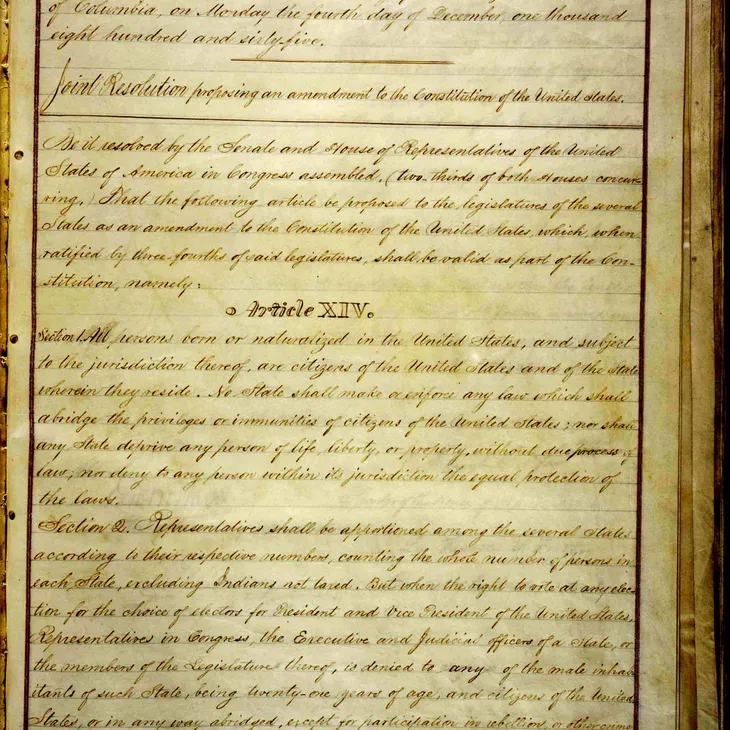 of Columbia, on Monday the fourth day of December, one thousand
eight hundred and sixty-five.
Joint Resolution proposing an amendment to the Constitution of the United States.
Be it resolved by the Senate and House of Representatives of the United
States of America in Congress assembled, (two-thirds of both Houses concur-
ring,) That the following article be proposed to the legislatures of the several
States as an amendment to the Constitution of the United States, which, when
ratified by three-fourths of said legislatures, shall be valid as part of the Con-
stitution, namely:
Article XIV.
Section 1. All persons born or naturalized in the United States, and subject
to the jurisdiction thereof, are citizens of the United States and of the State
wherein they reside. No State shall make or enforce any law which shall
abridge the privileges or immunities of citizens of the United States; nor shall
any State deprive any person of life, liberty, or property, without due process of
law; nor deny to any person within its jurisdiction the equal protection of
the laws.
Section 2. Representatives shall be apportioned among the several States
according to their respective numbers, counting the whole number of persons in
each State, excluding Indians not taxed. But when the right to vote at any elec-
tion for the choice of electors for President and Vice President of the United States,
Representatives in Congress, the Executive and Judicial officers of a State, or
the members of the Legislature thereof, is denied to any of the male inhab-
itants of such State, being twenty-one years of age, and citizens of the United
States, or in any way abridged, except for participation in rebellion, or other crime